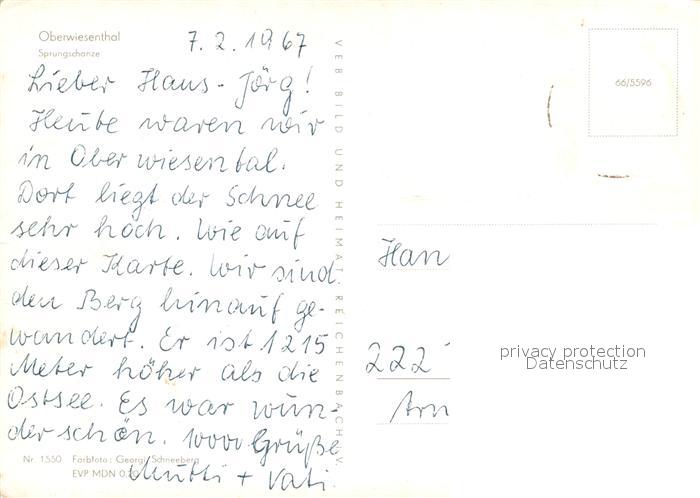 Oberwiesenthal
Sprungschanze
7.2.1967
Lieber Hans-Jörg!
Heute waren wir
in Oberwiesental.
Dort liegt der Schnee
sehr hoch. Wie auf
dieser Karte. Wir sind
den Berg hinauf ge-
wandert. Er ist 1215
Meter höher als die
Ostsee. Es war wun-
der schön. 10000 Grüße
Mutti + Vati.
Nr. 1550 Farbfoto: Georgi, Schneeberg
EVP MDN 0,20
VEB BILD UND HEIMAT REICHENBACH i. V.
66/5596
Han
222
Arn
privacy protection
Datenschutz